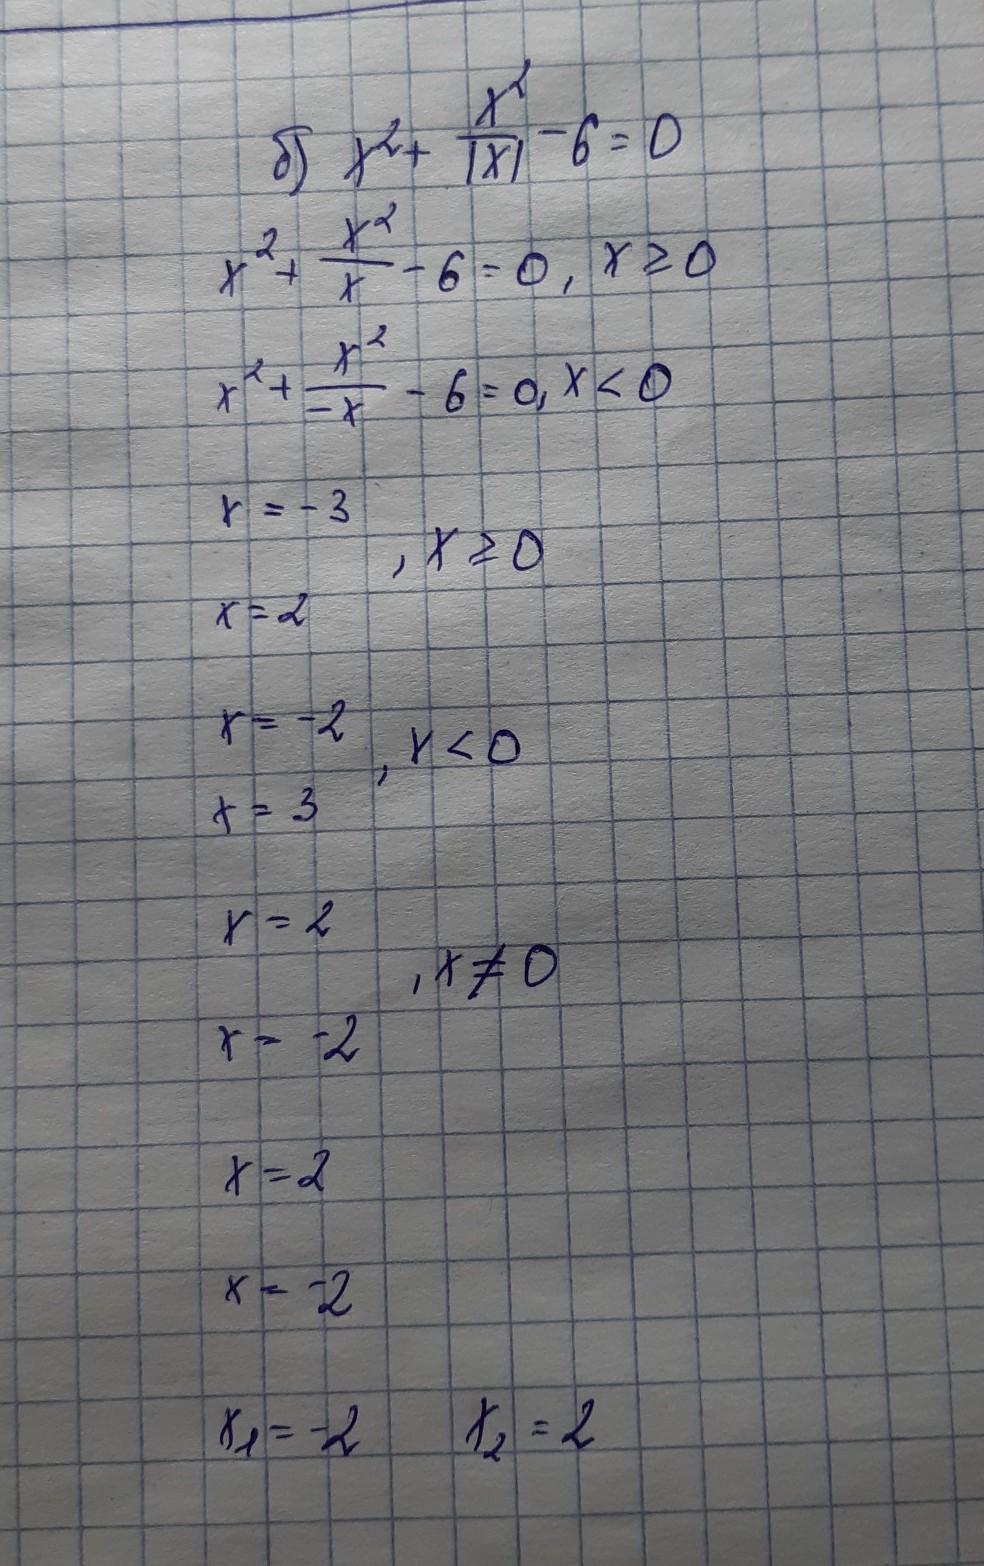 б) x² + x²/|x| - 6 = 0
x² + x²/x - 6 = 0, x ≥ 0
x² + x²/-x - 6 = 0, x < 0
x = -3
, x ≥ 0
x = 2
x = -2
, x < 0
x = 3
x = 2
, x ≠ 0
x = -2
x = 2
x = -2
x₁ = -2 x₂ = 2